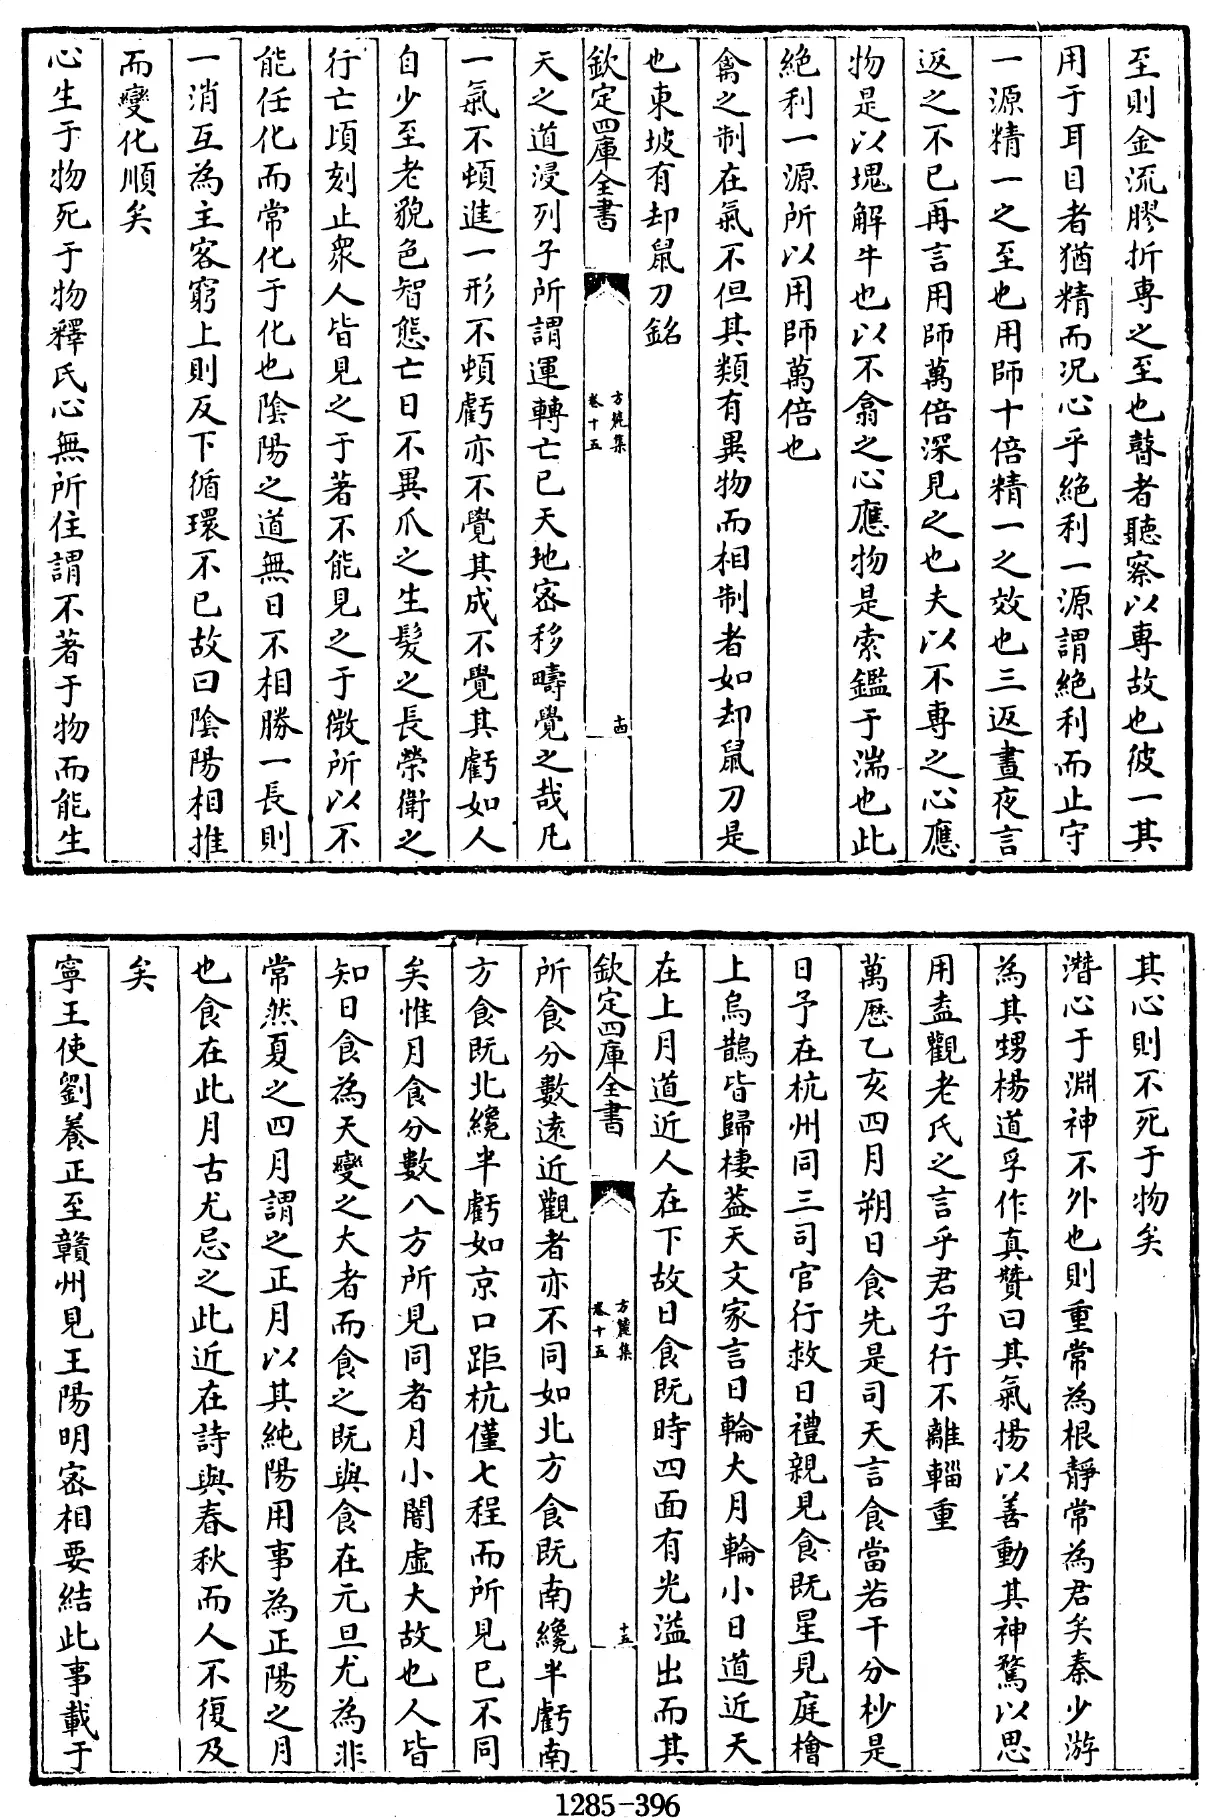 至則金流膠折專之至也瞽者聽察以專故也彼一其
用于耳目者猶精而况心乎絶利一源謂絶利而止守
一源精一之至也用師十倍精一之效也三返晝夜言
返之不已再言用師萬倍深見之也夫以不專之心應
物是以塊解牛也以不翕之心應物是索鑑于湍也此
絶利一源所以用師萬倍也
禽之制在氣不但其類有異物而相制者如却鼠刀是
也東坡有却鼠刀銘
欽定四庫全書
方麓集
卷十五
十四
天之道浸列子所謂運轉亡已天地宻移疇覺之哉凡
一氣不頓進一形不頓虧亦不覺其成不覺其虧如人
自少至老貌色智態亡日不異爪之生髮之長榮衛之
行亡頃刻止衆人皆見之于著不能見之于微所以不
能任化而常化于化也隂陽之道無日不相勝一長則
一消互為主客窮上則反下循環不已故曰隂陽相推
而變化順矣
心生于物死于物釋氏心無所住謂不著于物而能生
其心則不死于物矣
潛心于淵神不外也則重常為根靜常為君矣秦少游
為其甥楊道孚作真贊曰其氣揚以善動其神騖以思
用盍觀老氏之言乎君子行不離輜重
萬厯乙亥四月朔日食先是司天言食當若干分杪是
日予在杭州同三司官行救日禮親見食既星見庭檜
上烏鵲皆歸棲葢天文家言日輪大月輪小日道近天
在上月道近人在下故日食既時四面有光溢出而其
欽定四庫全書
方麓集
卷十五
十五
所食分數遠近觀者亦不同如北方食既南纔半虧南
方食既北纔半虧如京口距杭僅七程而所見已不同
矣惟月食分數八方所見同者月小闇虛大故也人皆
知日食為天變之大者而食之既與食在元旦尤為非
常然夏之四月謂之正月以其純陽用事為正陽之月
也食在此月古尤忌之此近在詩與春秋而人不復及
矣
寧王使劉養正至贛州見王陽明宻相要結此事載于
1285-396